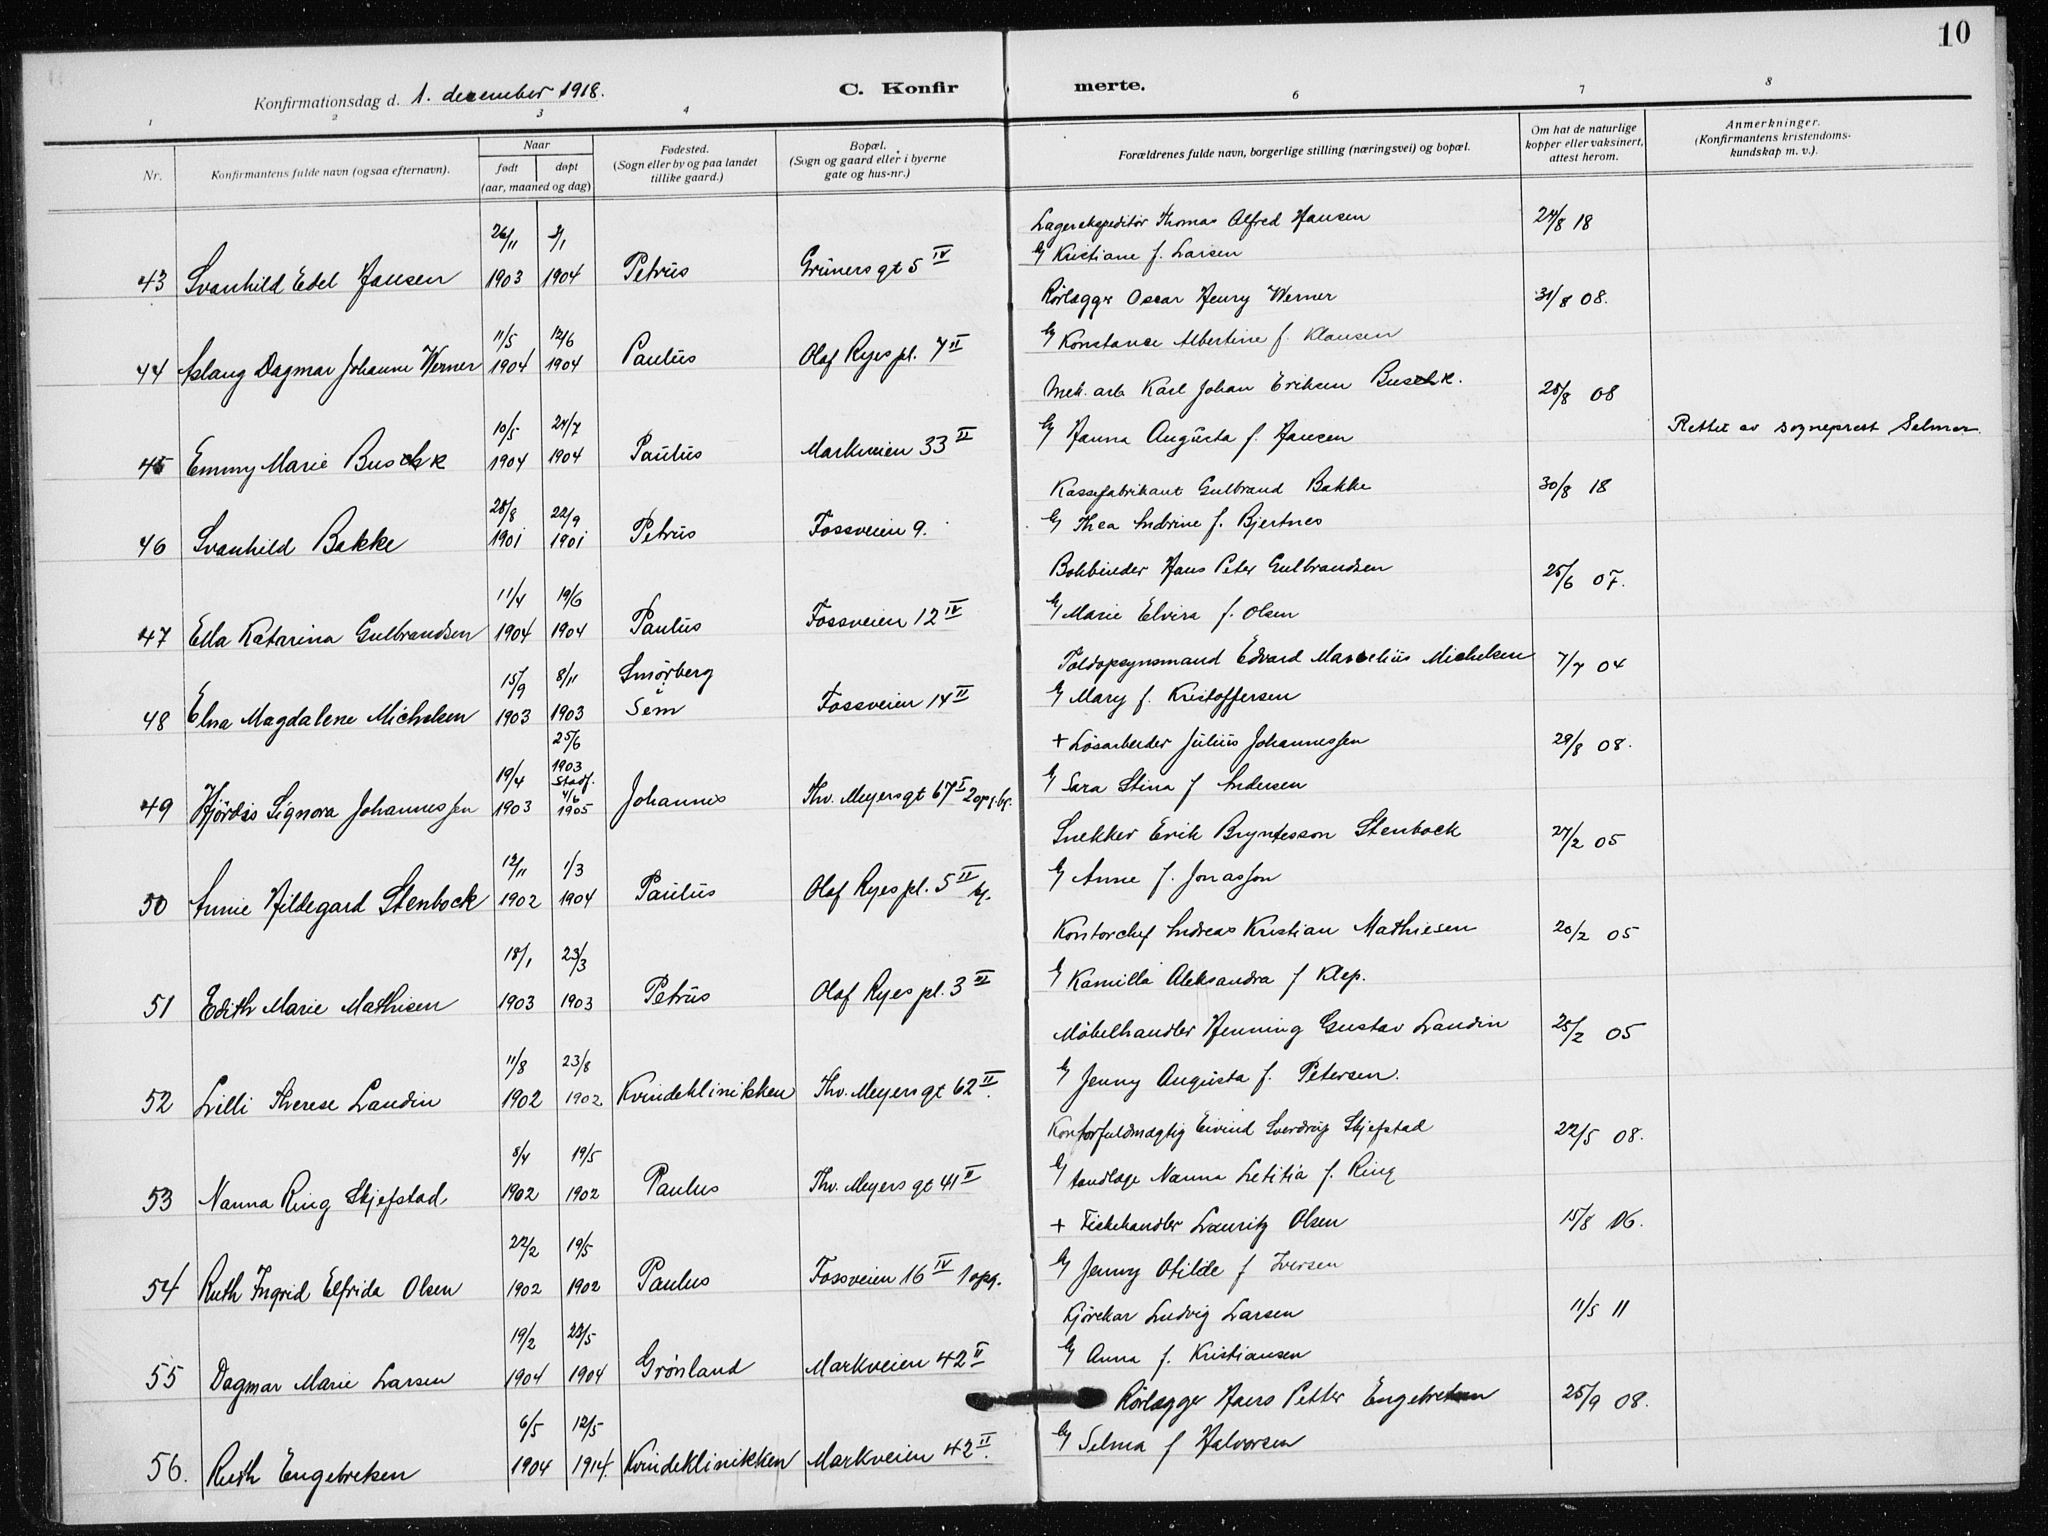 10
Konfirmationsdag d. 1. december 1918.
C. Konfir merte.
1 2 3 4 6 7 8
Nr.
Konfirmantens fulde navn (ogsaa efternavn).
Naar
født døpt
(aar, maaned og dag)
Fødested.
(Sogn eller by og paa landet
tillike gaard.)
Bopæl.
(Sogn og gaard eller i byerne
gate og hus-nr.)
Forældrenes fulde navn, borgerlige stilling (næringsvei) og bopæl.
Om hat de naturlige
kopper eller vaksinert,
attest herom.
Anmerkninger.
(Konfirmantens kristendoms-
kundskap m. v.).
26/11 3/1 Lagerekspeditør Thomas Alfred Hansen 24/8 18
43 Svanhild Edel Hansen 1903 1904 Petrus Grüners gt 5 IV Kristiane f. Larsen
11/5 12/6 Rørlægger Oscar Henry Werner 31/8 08.
44 Aslaug Dagmar Johanne Werner 1904 1904 Paulus Olaf Ryes pl. 7 II Konstance Albertine f. Klausen
10/5 24/7 Mek. arb. Karl Johan Eriksen Buschk. 25/8 08
45 Emmy Marie Buschk 1904 1904 Paulus Markveien 33 II Hanna Augusta f. Hansen Rettet av sogneprest Selmer
28/8 22/9 Kassefabrikant Gulbrand Bakke 30/8 18
46 Svanhild Bakke 1901 1901 Petrus Fossveien 9. Thea Andrine f. Bjertnes
11/4 19/6 Bokbinder Hans Peter Gulbrandsen 25/6 07.
47 Ella Katarina Gulbrandsen 1904 1904 Paulus Fossveien 12 IV Marie Elvira f. Olsen
15/9 8/11 Smørberg Toldopsynsmand Edvard Marcelius Michelsen 7/7 04
48 Elna Magdalene Michelsen 1903 1903 i Sem Fossveien 14 II Mary f. Kristoffersen
25/6 + Løsarbeider Julius Johannessen 29/8 08.
19/4 1903 Stadf. 4/6
49 Hjørdis Signora Johannessen 1903 1905 Johannes Thv. Meyers gt 67 I 2 opg. bg. Sara Stina f Andersen
12/11 1/3 Snekker Erik Bryntesson Stenbock 27/2 05
50 Annie Hildegard Stenbock 1902 1904 Paulus Olaf Ryes pl. 5 II bg. Anne f. Jonasson
18/1 23/3 Kontorchef Andreas Kristian Mathiesen 20/2 05
51 Edith Marie Mathisen 1903 1903 Petrus Olaf Ryes pl. 3 III Kamilla Aleksandra f Klep.
11/8 23/8 Møbelhandler Henning Gustav Landin 25/2 05
52 Lilli Therese Landin 1902 1902 Kvindeklinikken Thv. Meyers gt 62 II. Jenny Augusta f. Petersen.
8/4 19/5 Kontorfuldmægtig Eivind Sverdrup Skjefstad 22/5 08.
53 Nanna Ring Skjefstad 1902 1902 Paulus Thv. Meyers gt 41 II tandlæge Nanna Letitia f. Ring
22/2 19/5 + Fiskehandler Lauritz Olsen 15/8 06.
54 Ruth Ingrid Elfrida Olsen 1902 1902 Paulus Fossveien 16 IV 1 opg. Jenny Otilde f Iversen
19/2 22/5 Kjørekar Ludvig Larsen 11/5 11
55 Dagmar Marie Larsen 1904 1904 Grønland Markveien 42 II Anna f. Kristiansen
6/5 12/5 Rørlægger Hans Petter Engebretsen 25/9 08.
56. Ruth Engebretsen 1904 1914. Kvindeklinikken Markveien 42 II. Selma f Halvorsen